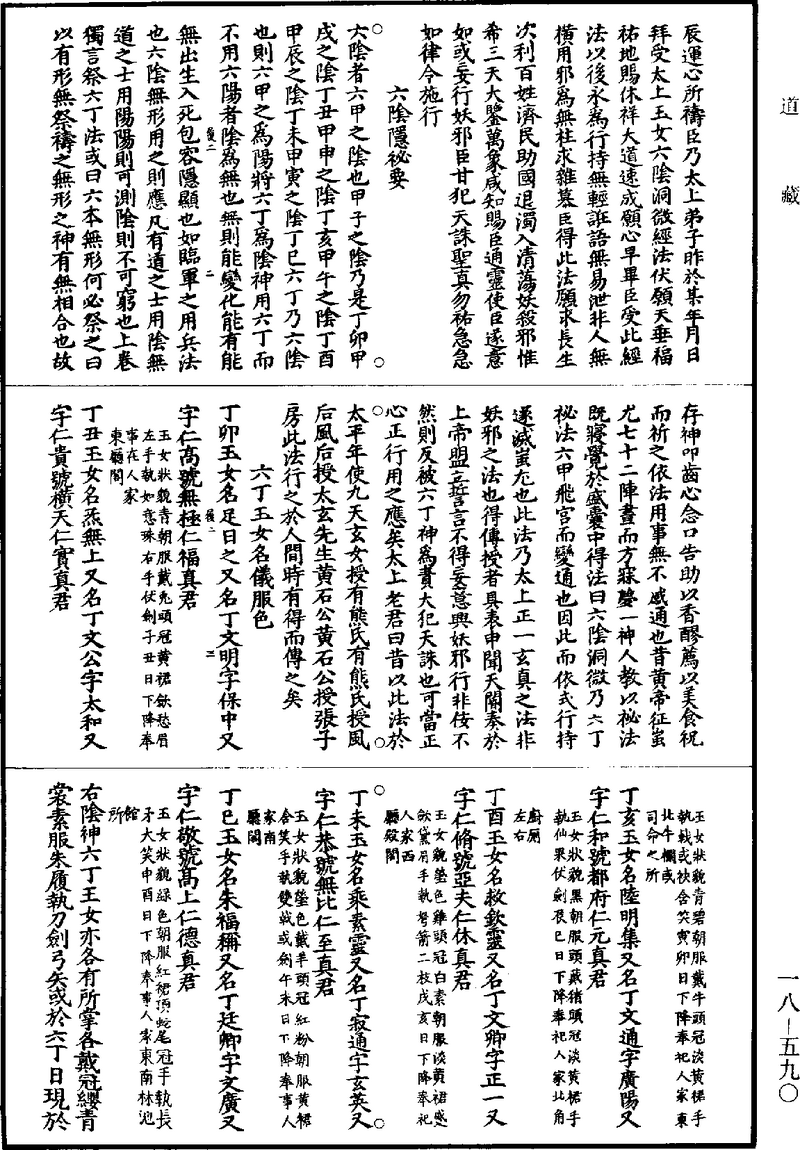 道藏
辰運心所禱臣乃太上弟子昨於某年月日
拜受太上玉女六陰洞微經法伏願天垂福
祐地賜休祥大道速成願心早畢臣受此經
法以後永為行持無輕誑語無易泄非人無
橫用邪為無枉求雜慕臣得此法願求長生
次利百姓濟民助國退濁入清蕩妖殺邪惟
希三天大鑒萬象咸知賜臣通靈使臣遂意
如或妄行妖邪臣甘犯天誅聖真勿祐急急
如律令施行
六陰隱秘要
六陰者六甲之陰也甲子之陰乃是丁卯甲
戌之陰丁丑甲申之陰丁亥甲午之陰丁酉
甲辰之陰丁未甲寅之陰丁巳六丁乃六陰
也則六甲之為陽將六丁為陰神用六丁而
不用六陽者陰為無也無則能變化能有能
無出生入死包容隱顯也如臨軍之用兵法
也六陰無形用之則應凡有道之士用陰無
道之士用陽陽則可測陰則不可窮也上卷
獨言祭六丁法或曰六本無形何必祭之曰
以有形無祭禱之無形之神有無相合也故
存神叩齒心念口告助以香醪薦以美食祝
而祈之依法用事無不感通也昔黃帝征蚩
尤七十二陣晝而方寐夢一神人教以秘法
既寢覺於盛囊中得法曰六陰洞微乃六丁
秘法六甲飛宮而變通也因此而依式行持
遂滅蚩尤也此法乃太上正一玄真之法非
妖邪之法也得傳授者具表申聞天闕奏於
上帝盟立誓言不得妄意興妖邪行非侫不
然則反被六丁神為責大犯天誅也可當正
心正行用之應矣太上老君曰昔以此法於
太平年使九天玄女授有熊氏有熊氏授風
后風后授太玄先生黃石公黃石公授張子
房此法行之於人間時有得而傳之矣
六丁玉女名儀服色
丁卯玉女名足日之又名丁文明字保中又
字仁高號無極仁福真君
玉女狀貌青朝服戴兔頭冠黃裙飲愁眉
左手執如意珠右手仗劍子丑日下降奉
事在人家
東廳閣
丁丑玉女名炁無上又名丁文公字太和又
字仁貴號橫天仁實真君
玉女狀貌青碧朝服戴牛頭冠淡黃裙手
執戟或袂含笑寅卯日下降奉祀人家東
北牛欄或
司命之所
丁亥玉女名陸明集又名丁文通字廣陽又
字仁和號都府仁元真君
玉女狀貌黑朝服頭戴猪頭冠淡黃裙手
執仙果伏劍辰巳日下降奉祀人家北角
廚廁
左右
丁酉玉女名救欽靈又名丁文卿字正一又
字仁脩號亞夫仁休真君
玉女貌瑩色雞頭冠白素朝服淡黃裙盛
飲黛眉手執弩箭二枝戌亥日下降奉祀
人家西
廳殿閣
丁未玉女名乘素靈又名丁寂通字玄英又
字仁恭號無比仁至真君
玉女狀貌瑩色戴羊頭冠紅粉朝服黃裙
含笑手執雙戟或劍午未日下降奉事人
家南
廳閣
丁巳玉女名朱福稱又名丁廷卿字文廣又
字仁敬號高上仁德真君
玉女狀貌綠色朝服紅裙頂蛇尾冠手執長
矛大笑申酉日下降奉事人家東南林池
館
所
右陰神六丁玉女亦各有所掌各戴冠纓青
裳素服朱履執刀劍弓矢或於六丁日現於
後二
二
後二
三
一八—五九〇